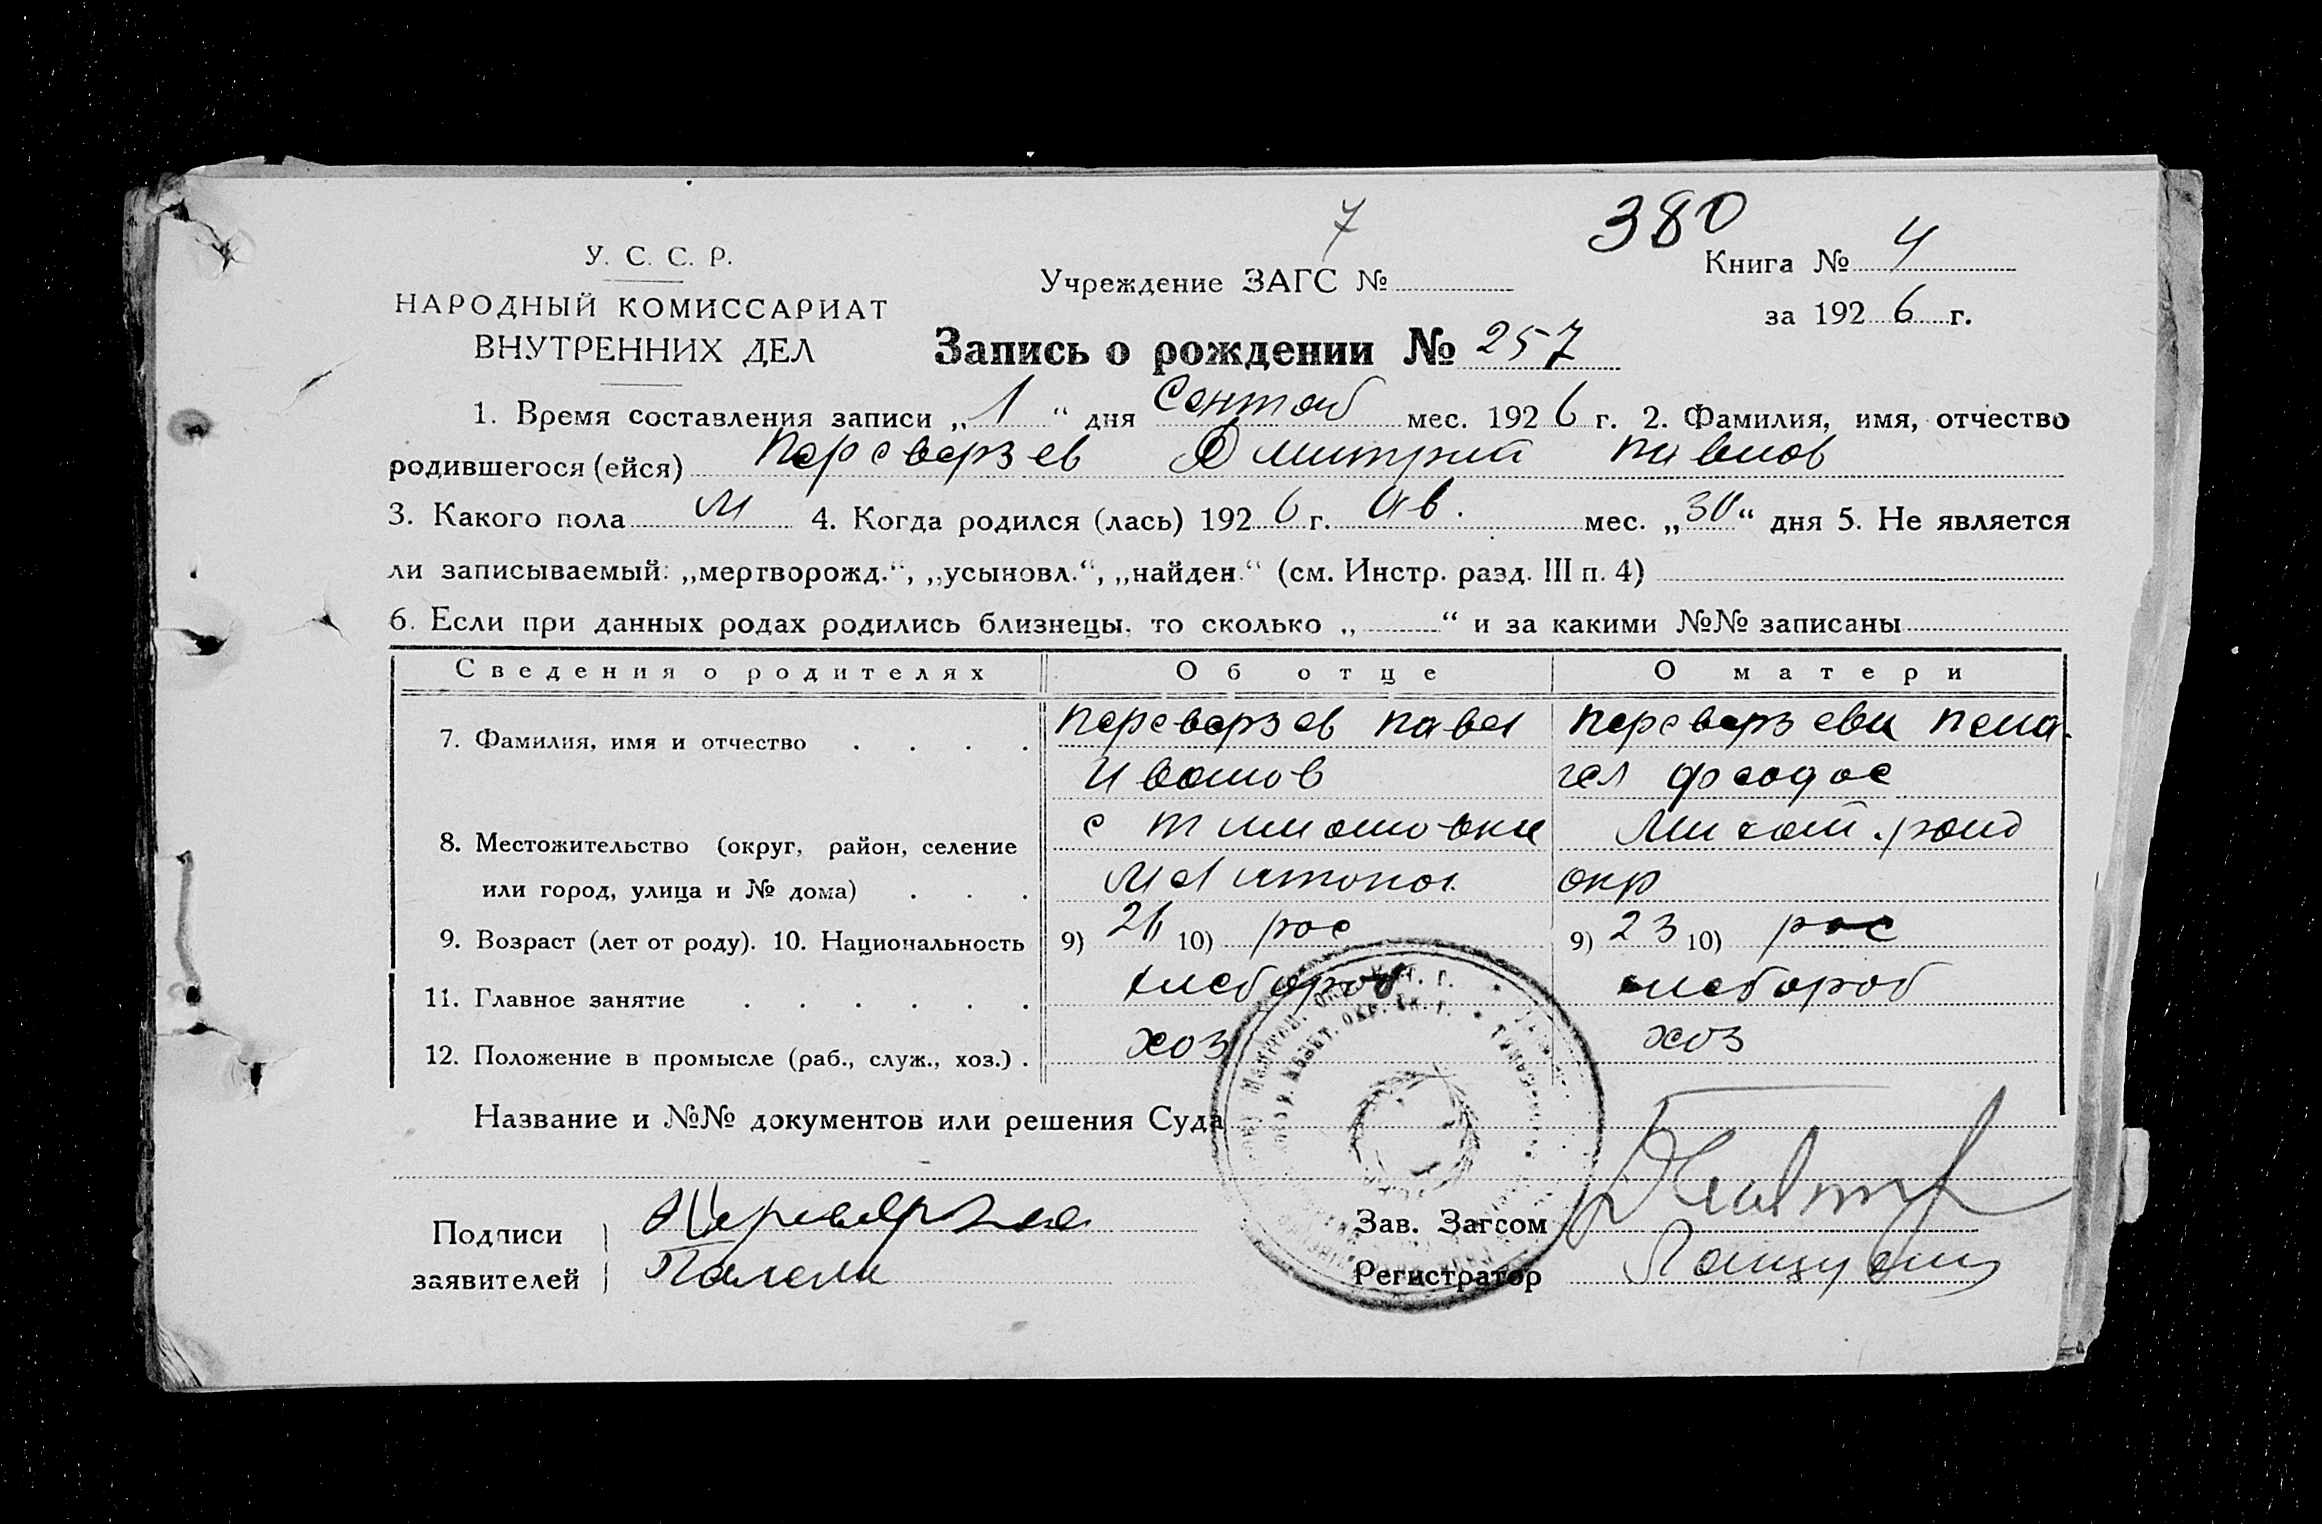 7
380
У. С. С. Р.
Учреждение ЗАГС №
Книга № 4
НАРОДНЫЙ КОМИССАРИАТ
за 1926 г.
ВНУТРЕННИХ ДЕЛ
Запись о рождении № 257
1. Время составления записи „1“ дня Сентяб мес. 1926 г. 2. Фамилия, имя, отчество
родившегося (ейся) Переверзев Дмитрий Павлов
3. Какого пола м 4. Когда родился (лась) 1926 г. Ав. мес. „30“ дня 5. Не является
ли записываемый: „мертворожд.“, „усыновл.“, „найден.“ (см. Инстр. разд. III п. 4)
6. Если при данных родах родились близнецы, то сколько „ “ и за какими №№ записаны
Сведения о родителях Об отце О матери
7. Фамилия, имя и отчество Переверзев Павел Переверзева Пела-
Иванов гея Феодос
8. Местожительство (округ, район, селение с Тимошовки Михайл. район
или город, улица и № дома) Мелитопол. окр
9. Возраст (лет от роду). 10. Национальность 9) 26 10) рос 9) 23 10) рос
11. Главное занятие хлебороб хлебороб
12. Положение в промысле (раб., служ., хоз.) хоз хоз
Название и №№ документов или решения Суда
Подписи
заявителей
Зав. Загсом
Регистратор